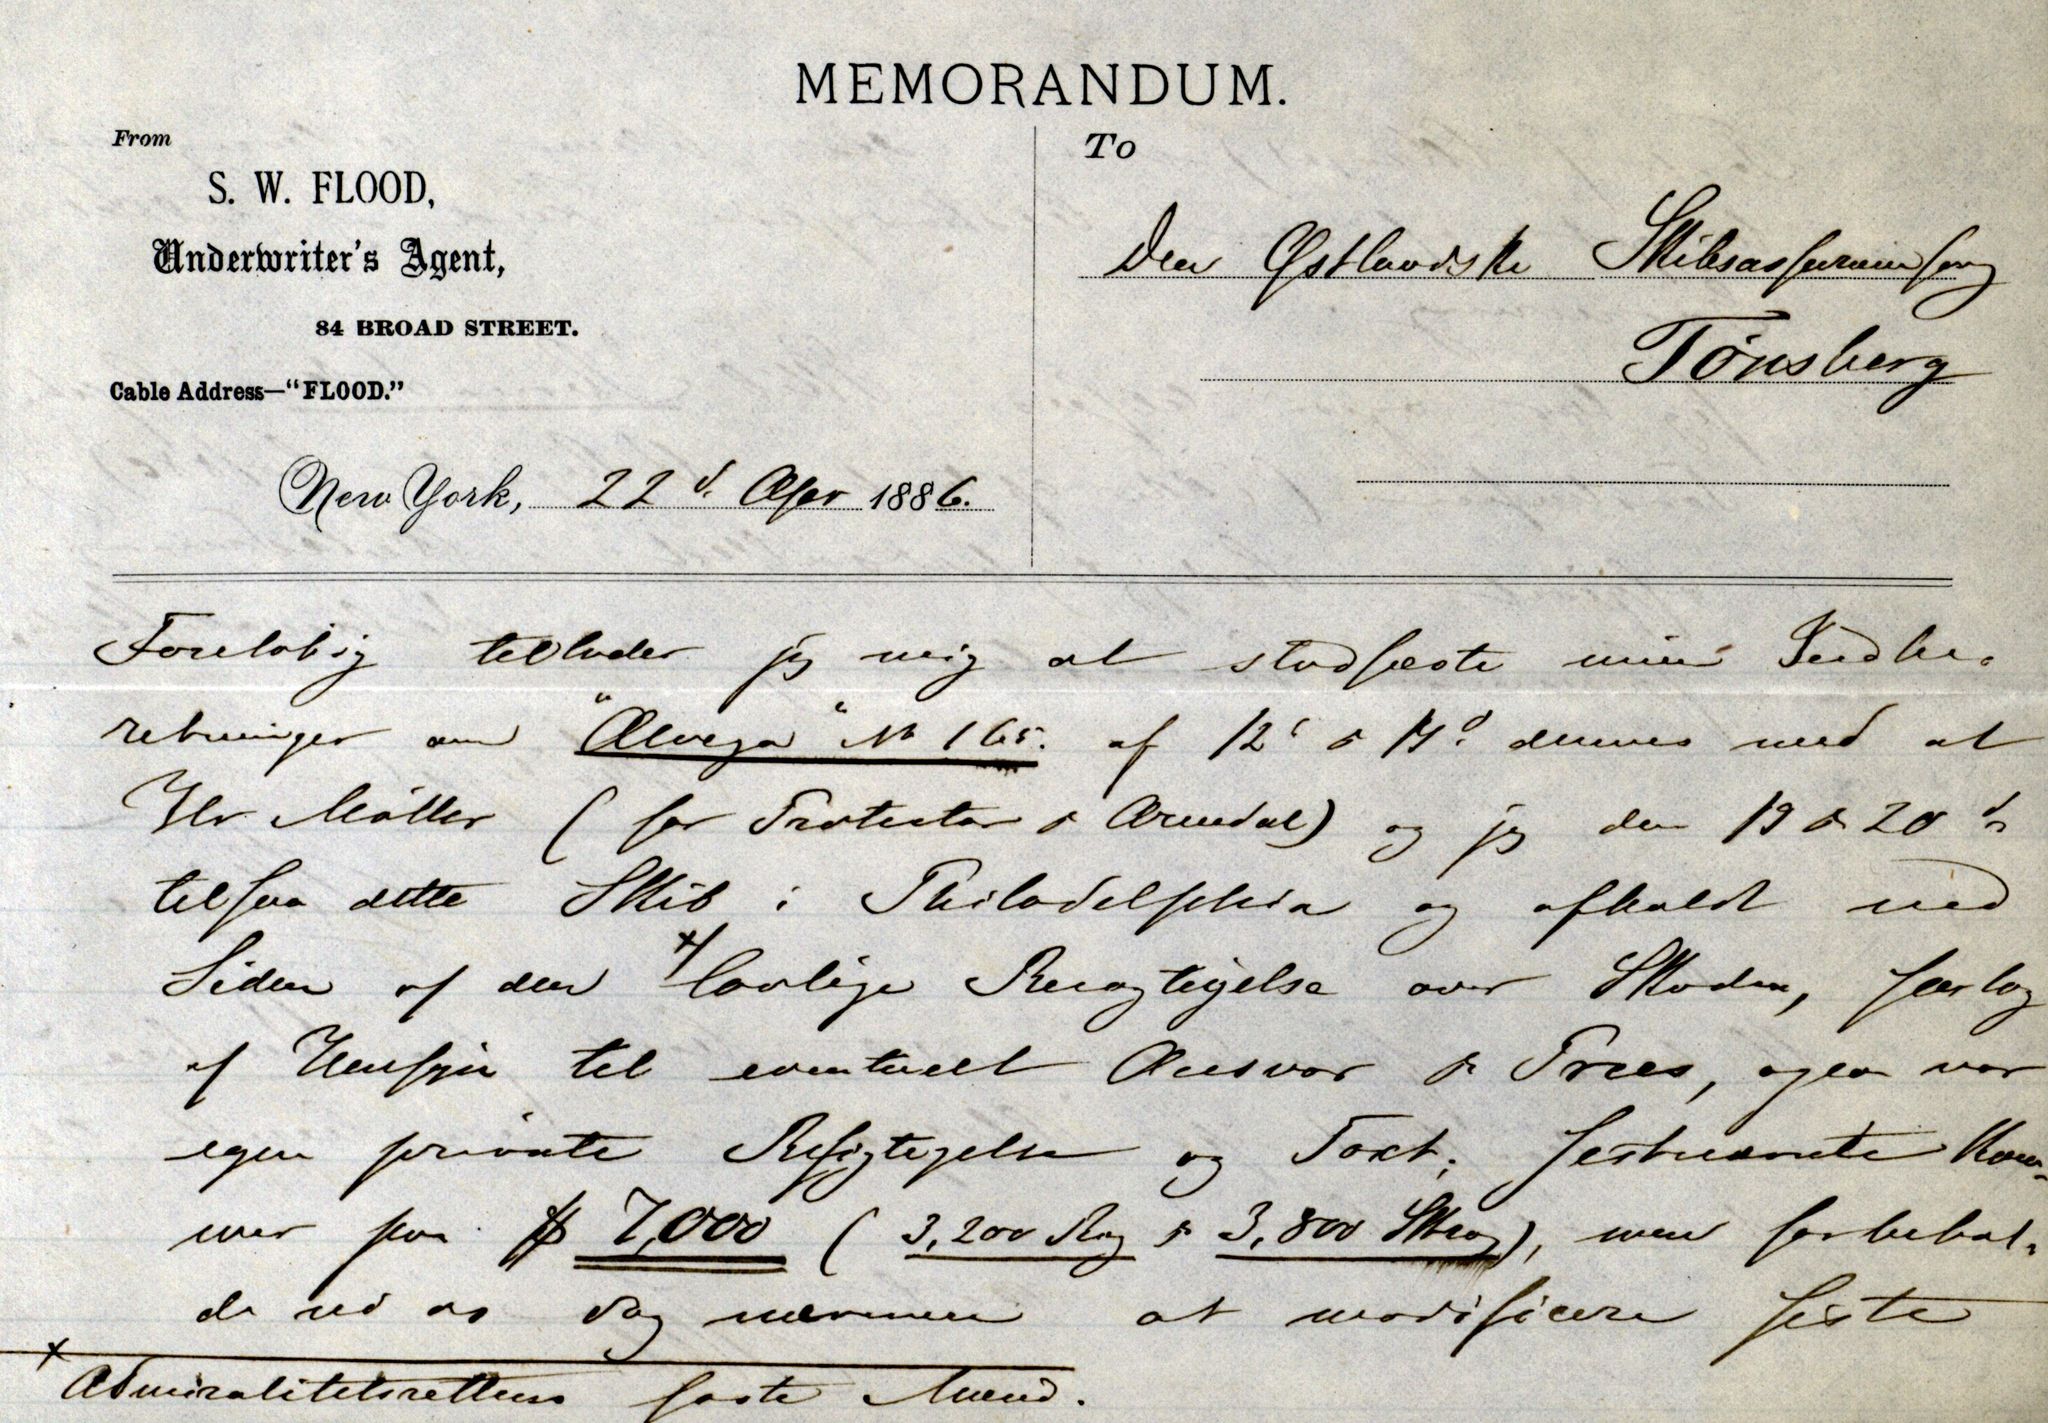 MEMORANDUM.
From
S. W. FLOOD,
Underwriter's Agent,
84 BROAD STREET.
Cable Address—"FLOOD."
New York, 22d. Apr 1886.
To
Den Østlandske Skibsassuranceforg
Tønsberg
Foreløbig tillader jeg mig at stadfæste mine Indbe-
retninger om "Alvega" No 165. af 12 & dennes med at
Hr Møller (for Protector & Arendal) og jeg den 19 & 20d
tilsaa dette Skib i Philadelphia og afholdt ved
Siden af den x/ lovlige Besigtigelse over Skaden, særlig
af Hensyn til eventuelt Ansvar & Prces, ogsaa vor
egen private Besigtigelse og Taxt; sestnævnte kom-
mer paa $ 7,000 (3,200 Rag & 3,800 Skrog), men forbehol-
de vi os dog nærmere at modificere siste
x
Admiralitetsrettens faste Mænd.